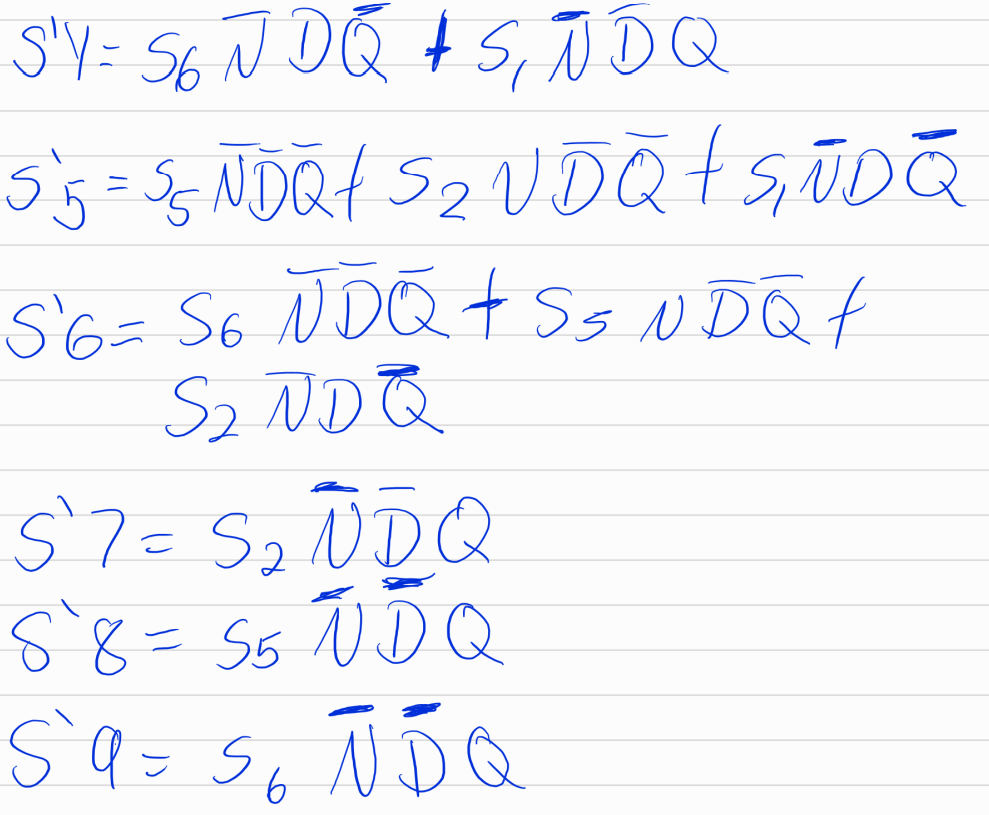 S'4 = S₆ N̅ D Q̅ + S₁ N̅ D̅ Q
S'5 = S₅ N̅ D̅ Q̅ + S₂ N D̅ Q̅ + S₁ N̅ D Q̅
S'6 = S₆ N̅ D̅ Q̅ + S₅ N D̅ Q̅ +
S₂ N̅ D Q̅
S'7 = S₂ N̅ D̅ Q
S'8 = S₅ N̅ D̅ Q
S'9 = S₆ N̅ D̅ Q